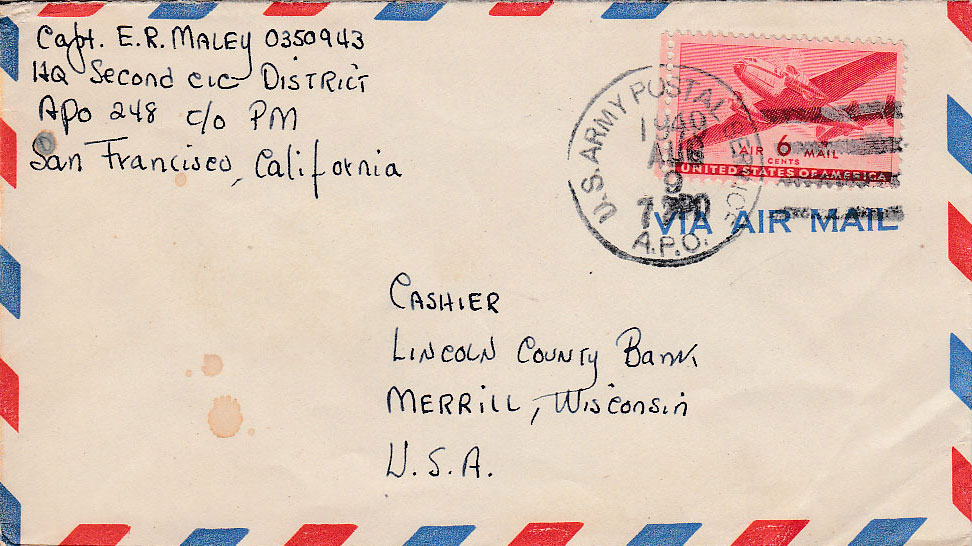 Capt. E.R. MALEY 0350943
HQ Second CIC DISTRICT
APO 248 c/o PM
San Francisco, California
U.S. ARMY POSTAL SERVICE
1946
AUG
9
A.P.O.
AIR 6 MAIL
CENTS
UNITED STATES OF AMERICA
VIA AIR MAIL
CASHIER
LINCOLN COUNTY BANK
MERRILL, Wisconsin
U.S.A.